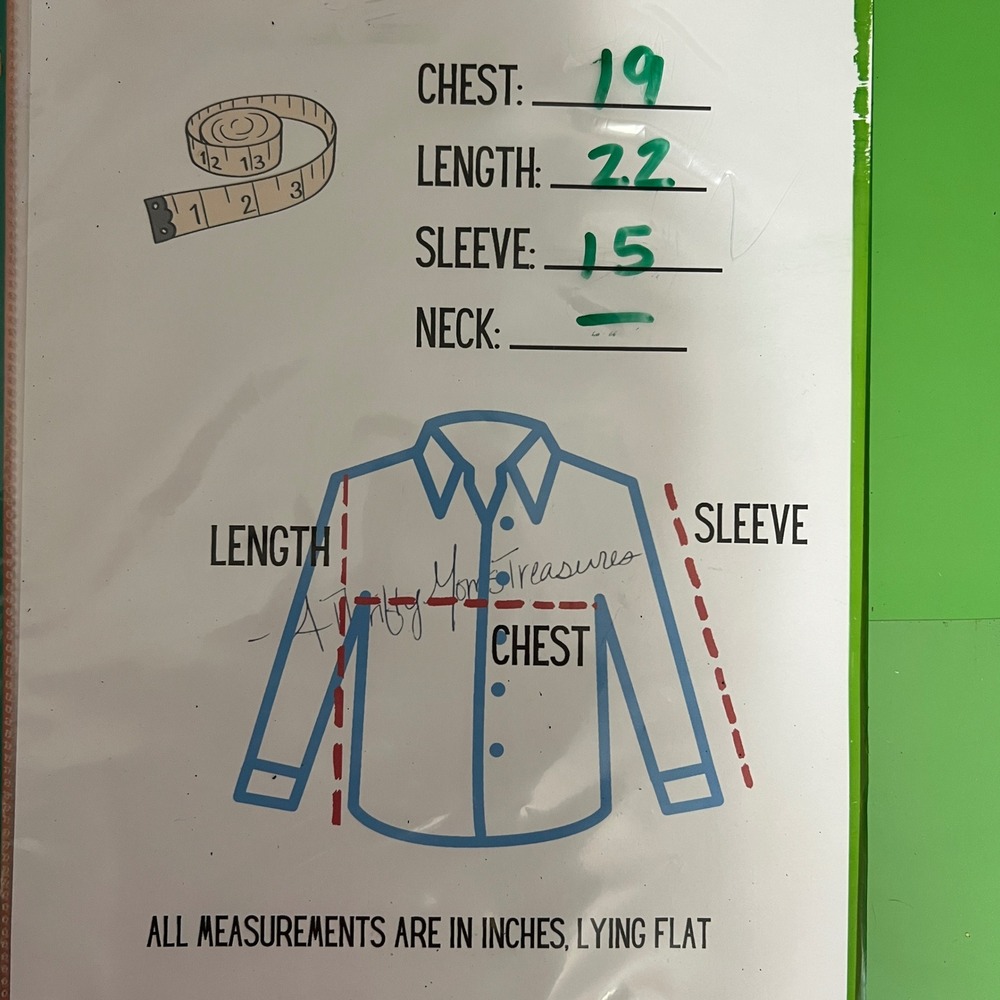 CHEST: 19
LENGTH: 22
SLEEVE: 15
NECK: —
12 13
1 2 3
LENGTH
SLEEVE
- A Thrifty Mom's Treasures
CHEST
ALL MEASUREMENTS ARE IN INCHES, LYING FLAT